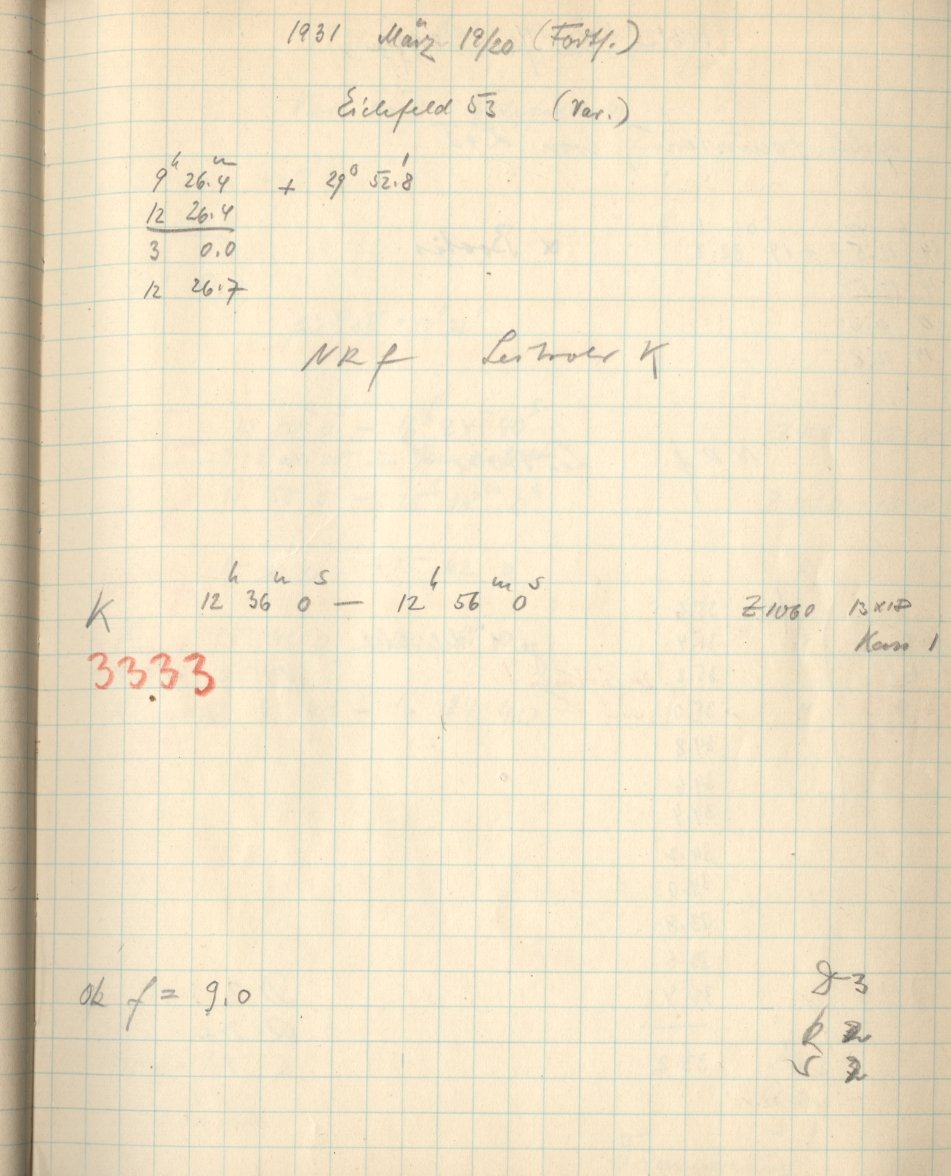 1931 März 19/20 (Forts.)
Eichfeld 53 (Var.)
9ʰ 26.4ᵐ + 29° 52.8'
12 26.4
3 0.0
12 26.7
NR f Leitrohr K
K 12ʰ 36ᵐ 0ˢ — 12ʰ 56ᵐ 0ˢ Z1060 13x18
Kass 1
3333
ok f = 9.0
D 3
2
2